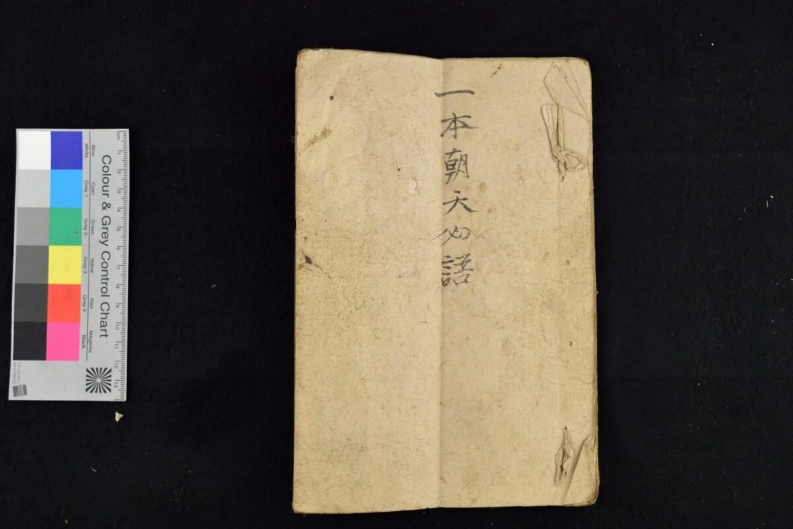 一本朝天必語
Colour & Grey Control Chart
Blue
Cyan
Green
Yellow
Red
Magenta
White
Grey 1
Grey 2
Grey 3
Grey 4
Black